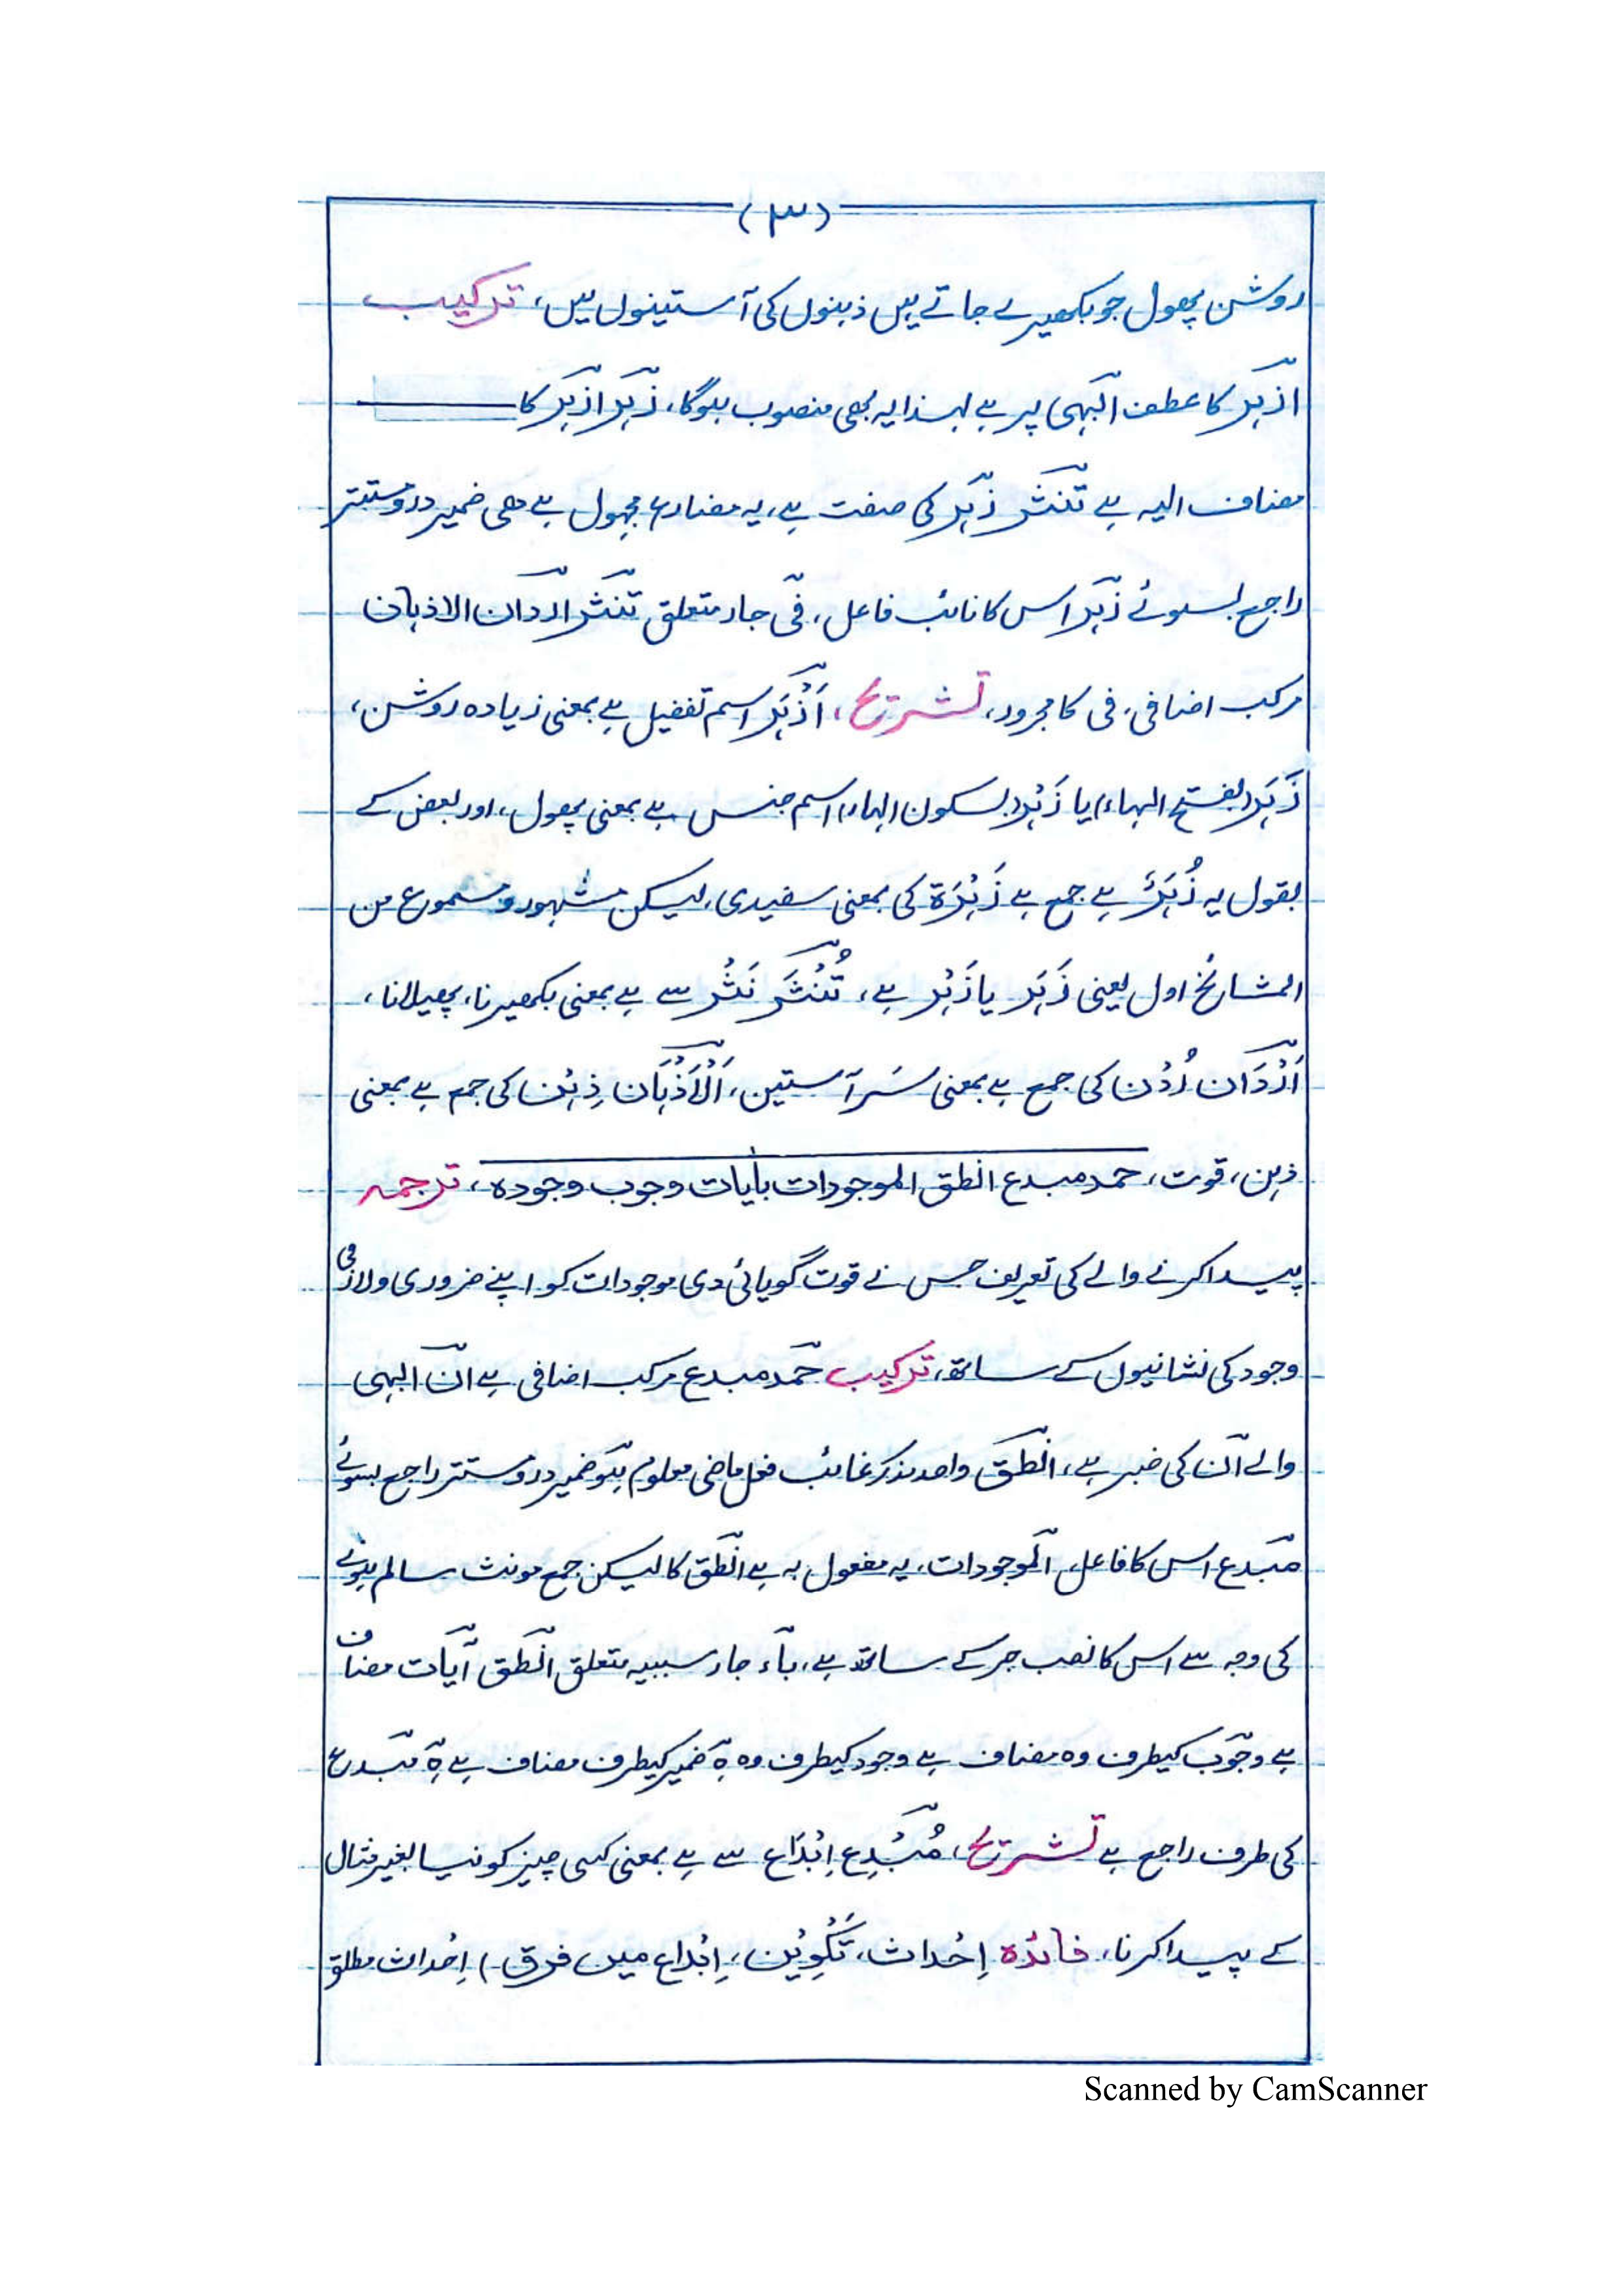 (۳)
روشن پھول جو بکھیرے جاتے ہیں ذہنوں کی آستینوں میں، ترکیب
ازہر کا عطف البہی پر ہے لہذا یہ بھی منصوب ہوگا، زہر ازہر کا
مضاف الیہ ہے تنثر زہر کی صفت ہے، یہ مضارع مجہول ہے ھی ضمیر درو مستتر
راجع بسوئے زہر اس کا نائب فاعل، فی جار متعلق تنثر اردان الاذہان
مرکب اضافی، فی کا مجرور، تشریح، اَزْہَر اسم تفضیل ہے بمعنی زیادہ روشن،
زَہَر (بفتح الہاء) یا زَہْر (بسکون الہاء) اسم جنس ہے بمعنی پھول، اور بعض کے
بقول یہ زُہَرٌ ہے جمع ہے زَہْرَۃ کی بمعنی سفیدی، لیکن مشہور و مسموع من
المشائخ اول یعنی زَہَر یا زَہْر ہے، تُنْثَرُ نَثْر سے ہے بمعنی بکھیرنا، پھیلانا،
اَرْدَان رُدْن کی جمع ہے بمعنی سَر آستین، اَلْاَذْہَان ذِہْن کی جمع ہے بمعنی
ذہن، قوت، حمد مبدع انطق الموجودات بأیات وجوب وجودہ، ترجمہ
پیدا کرنے والے کی تعریف جس نے قوت گویائی دی موجودات کو اپنے ضروری ولازمی
وجود کی نشانیوں کے ساتھ، ترکیب حمد مبدع مرکب اضافی ہے ان البہی
والے ان کی خبر ہے، انطق واحد مذکر غائب فعل ماضی معلوم ہو ضمیر درو مستتر راجع بسوئے
مبدع اس کا فاعل، الموجودات، یہ مفعول بہ ہے انطق کا لیکن جمع مونث سالم ہونے
کی وجہ سے اس کا نصب جر کے ساتھ ہے، باء جار سببیہ متعلق انطق آیات مضاف
ہے وجوب کیطرف وہ مضاف ہے وجود کیطرف وہ ہ ضمیر کیطرف مضاف ہے ہ مبدع
کی طرف راجع ہے تشریح، مُبْدِع اِبْدَاع سے ہے بمعنی کسی چیز کو نیا بغیر مثال
کے پیدا کرنا، فائدہ اِحْداث، تَکْوِیْن، اِبْداع میں فرق) اِحْداث مطلق
Scanned by CamScanner